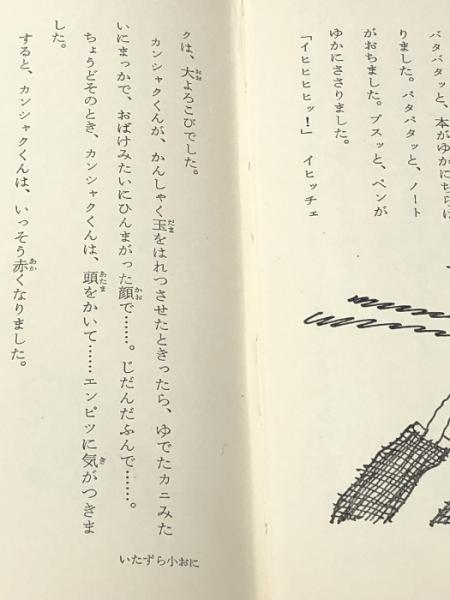 バタバタッと、本がゆかにちらば
りました。パタパタッと、ノート
がおちました。ブスッと、ペンが
ゆかにささりました。
「イヒヒヒヒッ！」 イヒッチェ
クは、大よろこびでした。
カンシャクくんが、かんしゃく玉をはれつさせたときったら、ゆでたカニみた
いにまっかで、おばけみたいにひんまがった顔で……。じだんだふんで……。
ちょうどそのとき、カンシャクくんは、頭をかいて……エンピツに気がつきま
した。
すると、カンシャクくんは、いっそう赤くなりました。
いたずら小おに